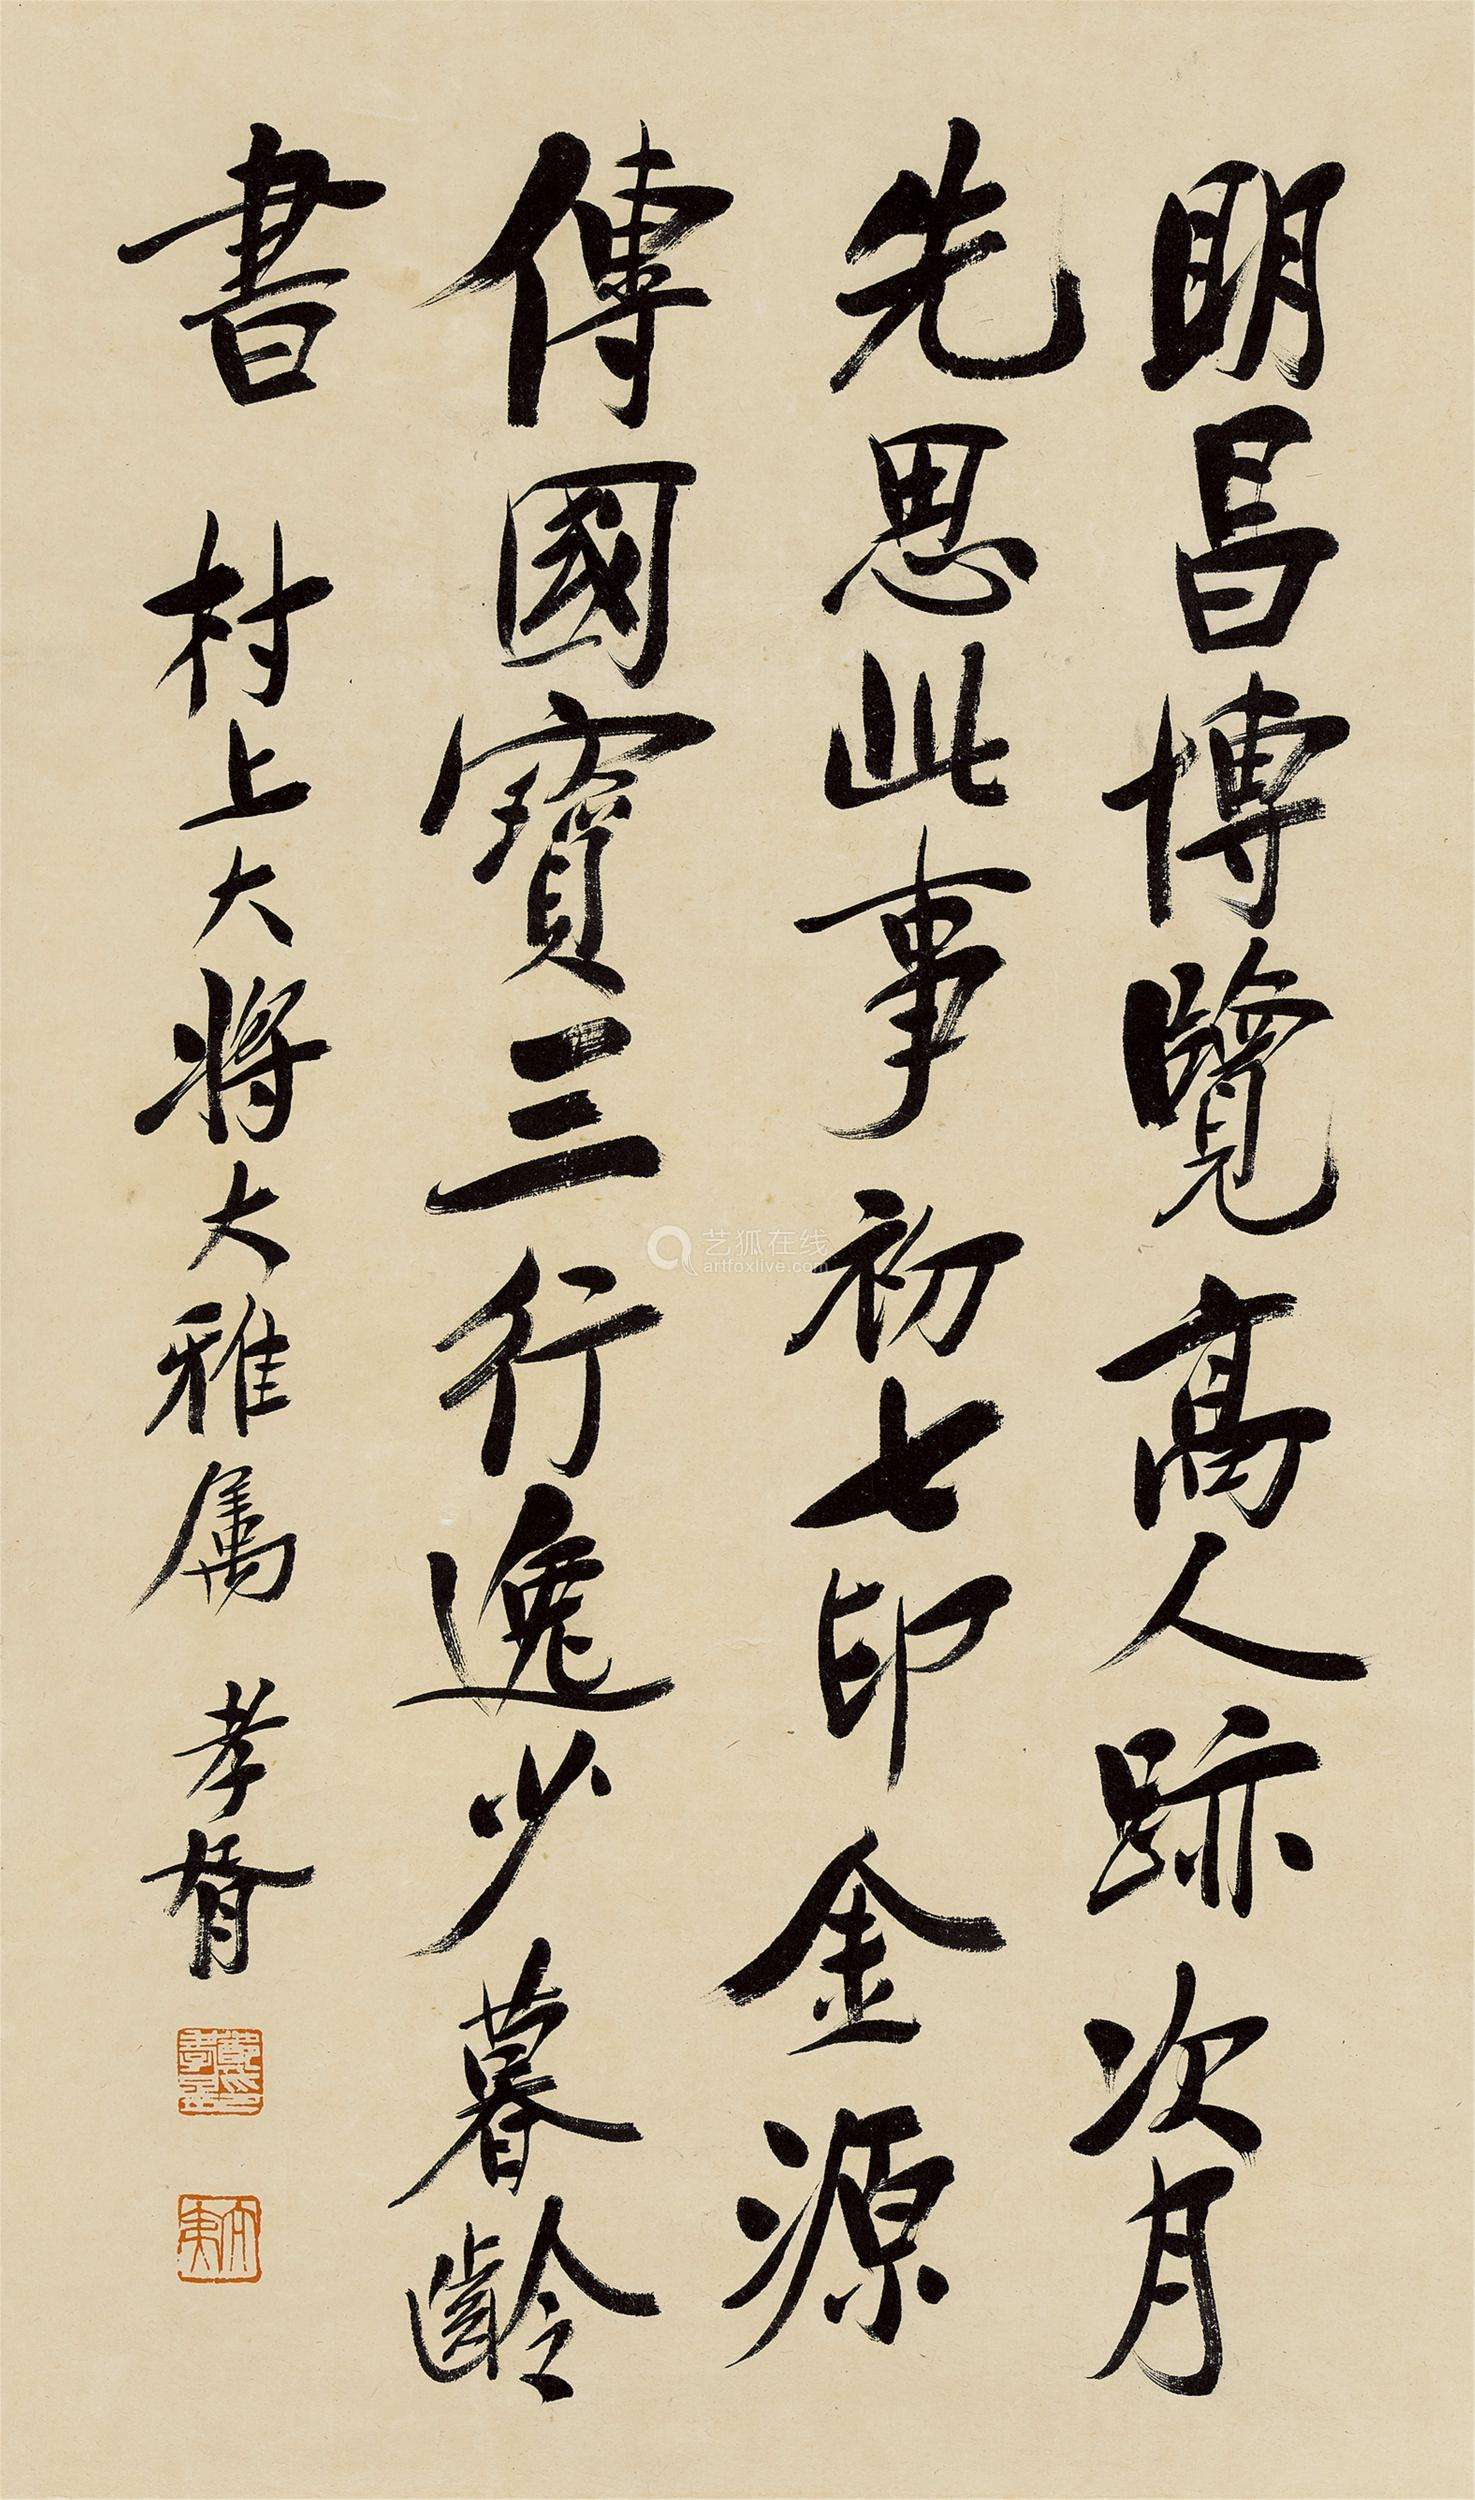 明昌博覽高人跡次月
先思此事初七印金源
傳國寶三行逸少暮齡
書 村上大將大雅属 孝胥
艺狐在线
artfoxlive.com